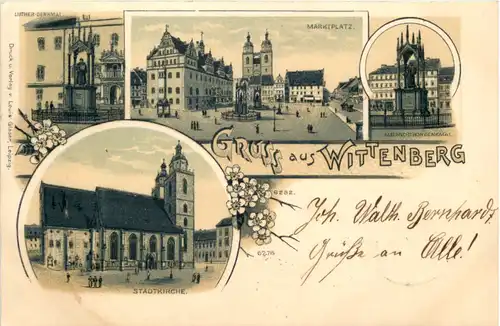 LUTHER-DENKMAL
MARKTPLATZ.
Druck u. Verlag v. Louis Glaser, Leipzig.
GRUSS AUS WITTENBERG
6292.
Joh. Walth. Bernhardt
Grüße an Alle!
6276
STADTKIRCHE.